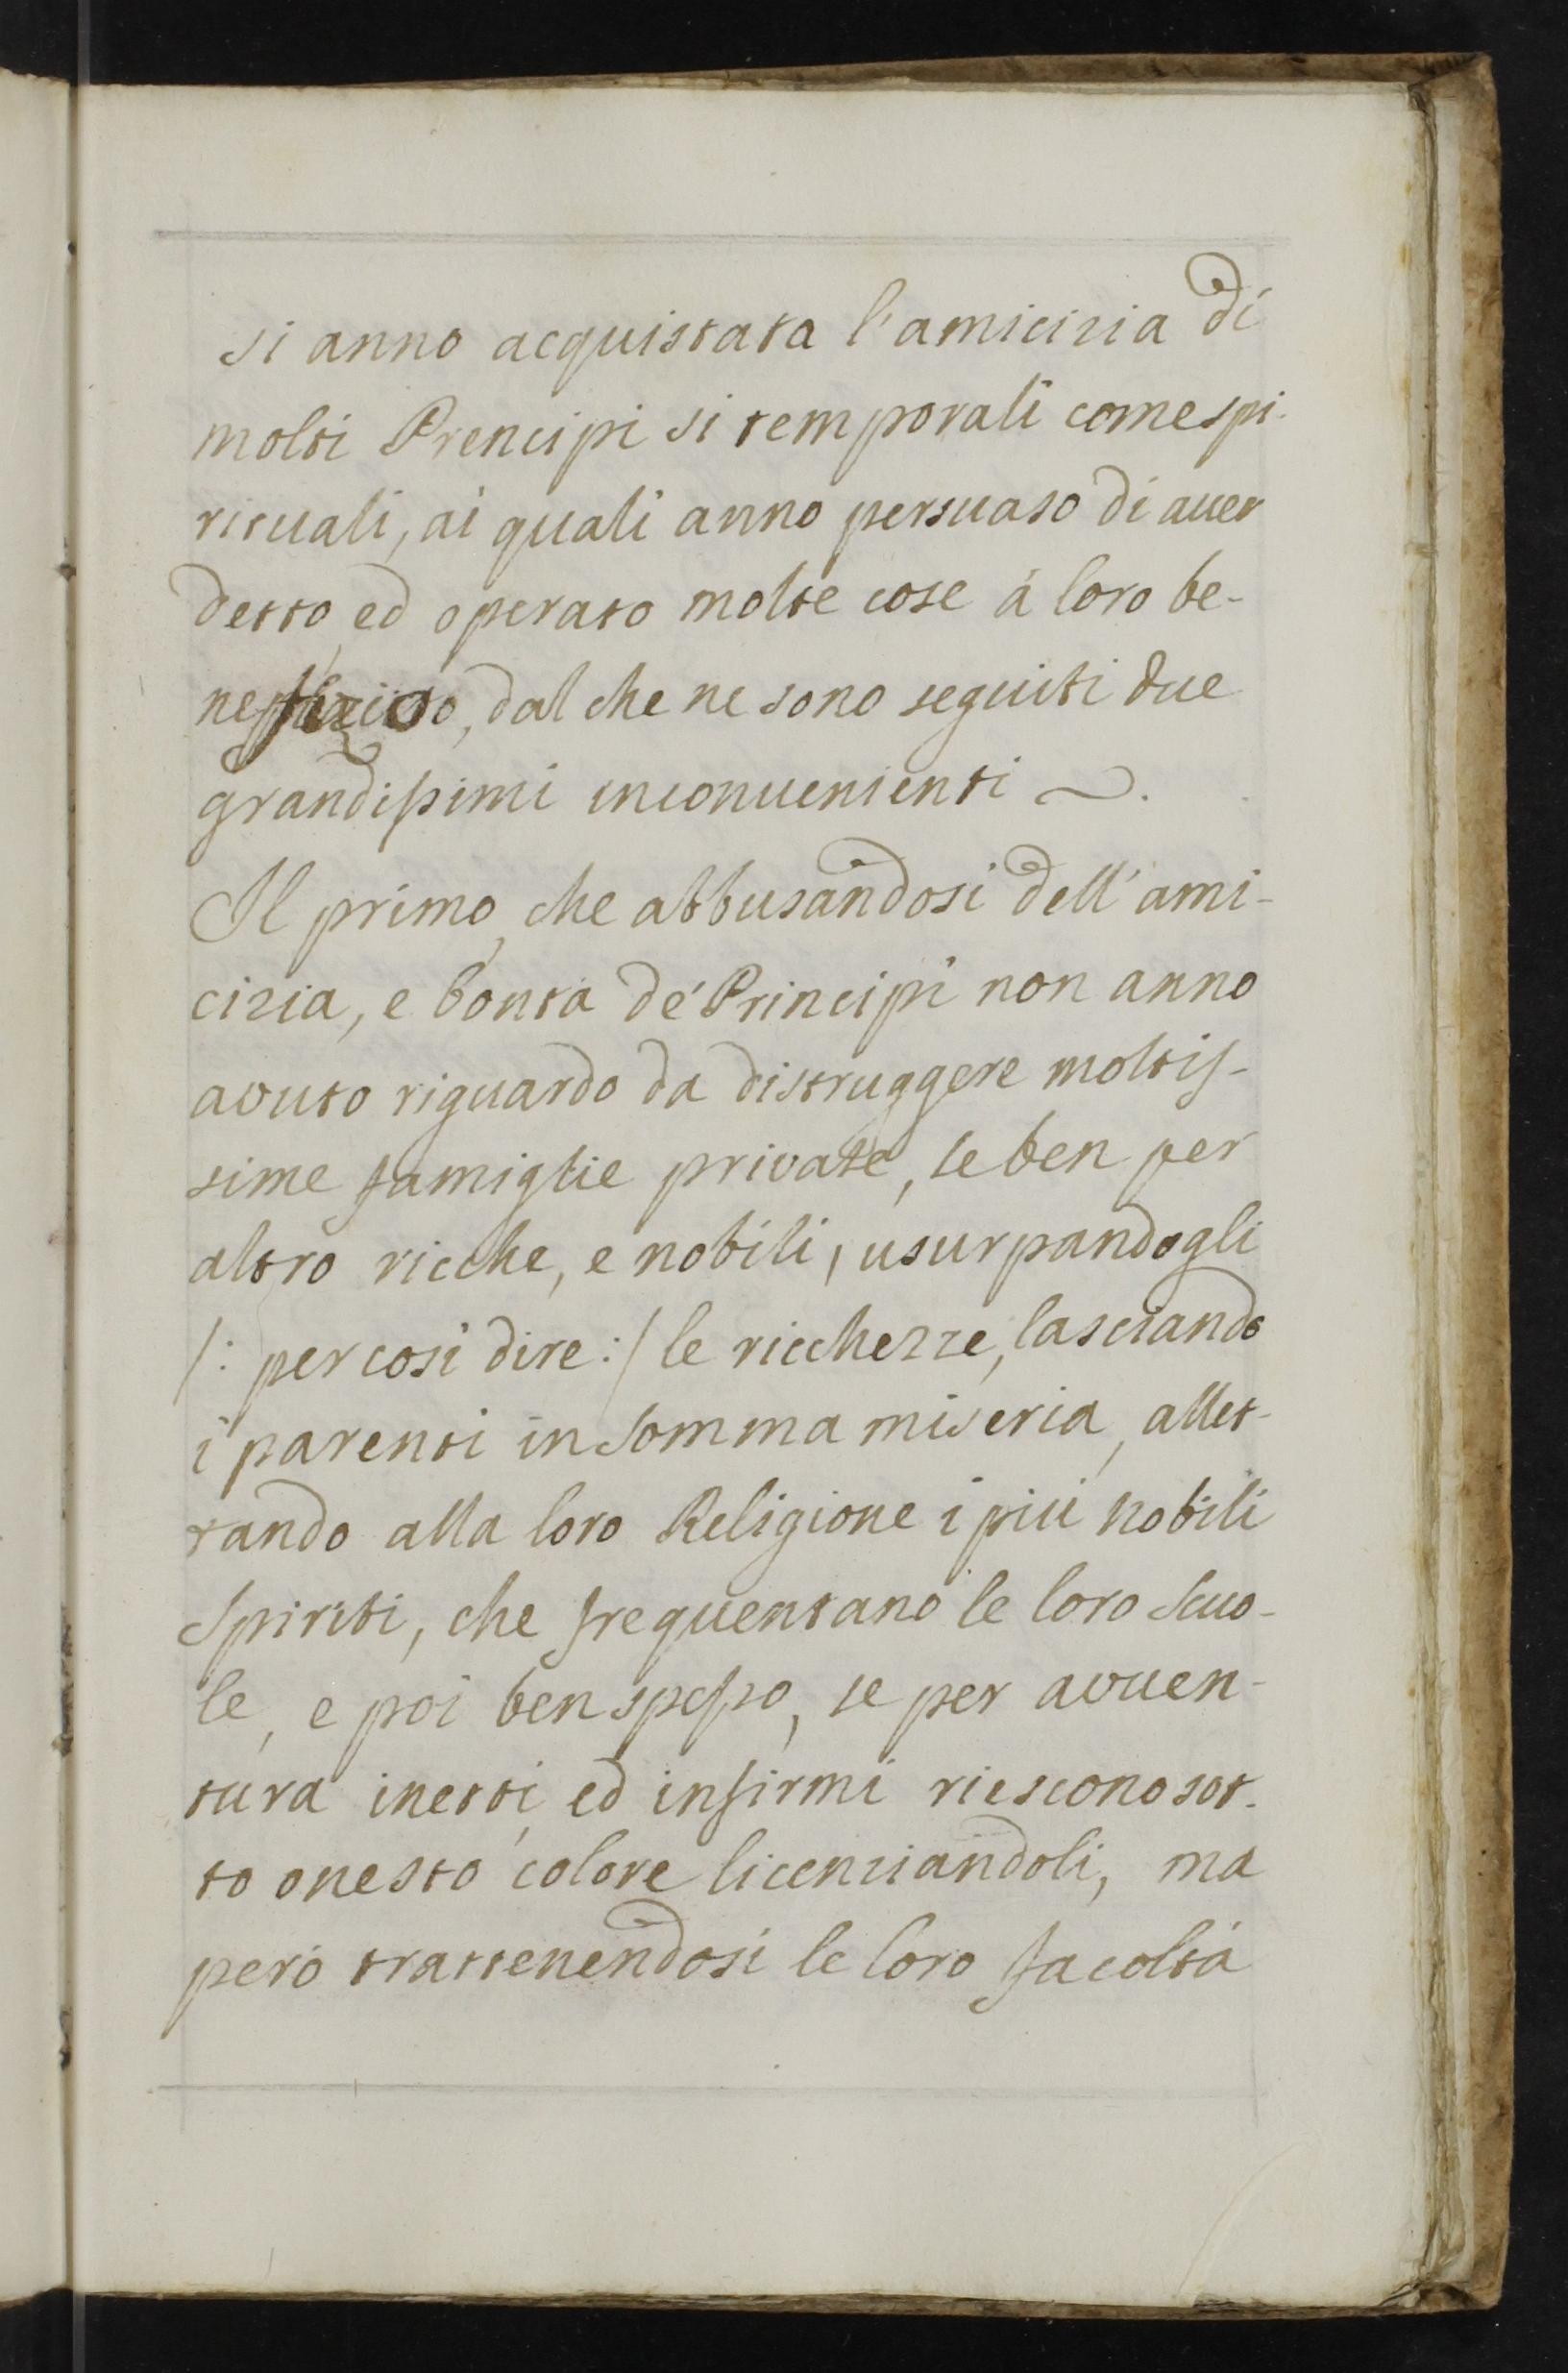 si anno acquistata l'amicizia di
molti Prencipi si temporali come spi-
rituali, ai quali anno persuaso di auer
detto, ed operato molte cose à loro be-
neffizio, dal che ne sono seguiti due
grandissimi inconuenienti ~.
Il primo, che abbusandosi dell'ami-
cizia, e bontà de' Principi non anno
avuto riguardo da distruggere moltis-
sime famiglie private, se ben per
altro ricche, e nobili, usurpandogli
/: per così dire :/ le ricchezze, lasciando
i parenti in somma miseria, allet-
tando alla loro Religione i più nobili
Spiriti, che frequentano le loro Scuo-
le, e poi ben spesso, se per avuen-
tura inetti, ed infirmi riescono sot-
to onesto colore licenziandoli, ma
però trattenendosi le loro facoltà